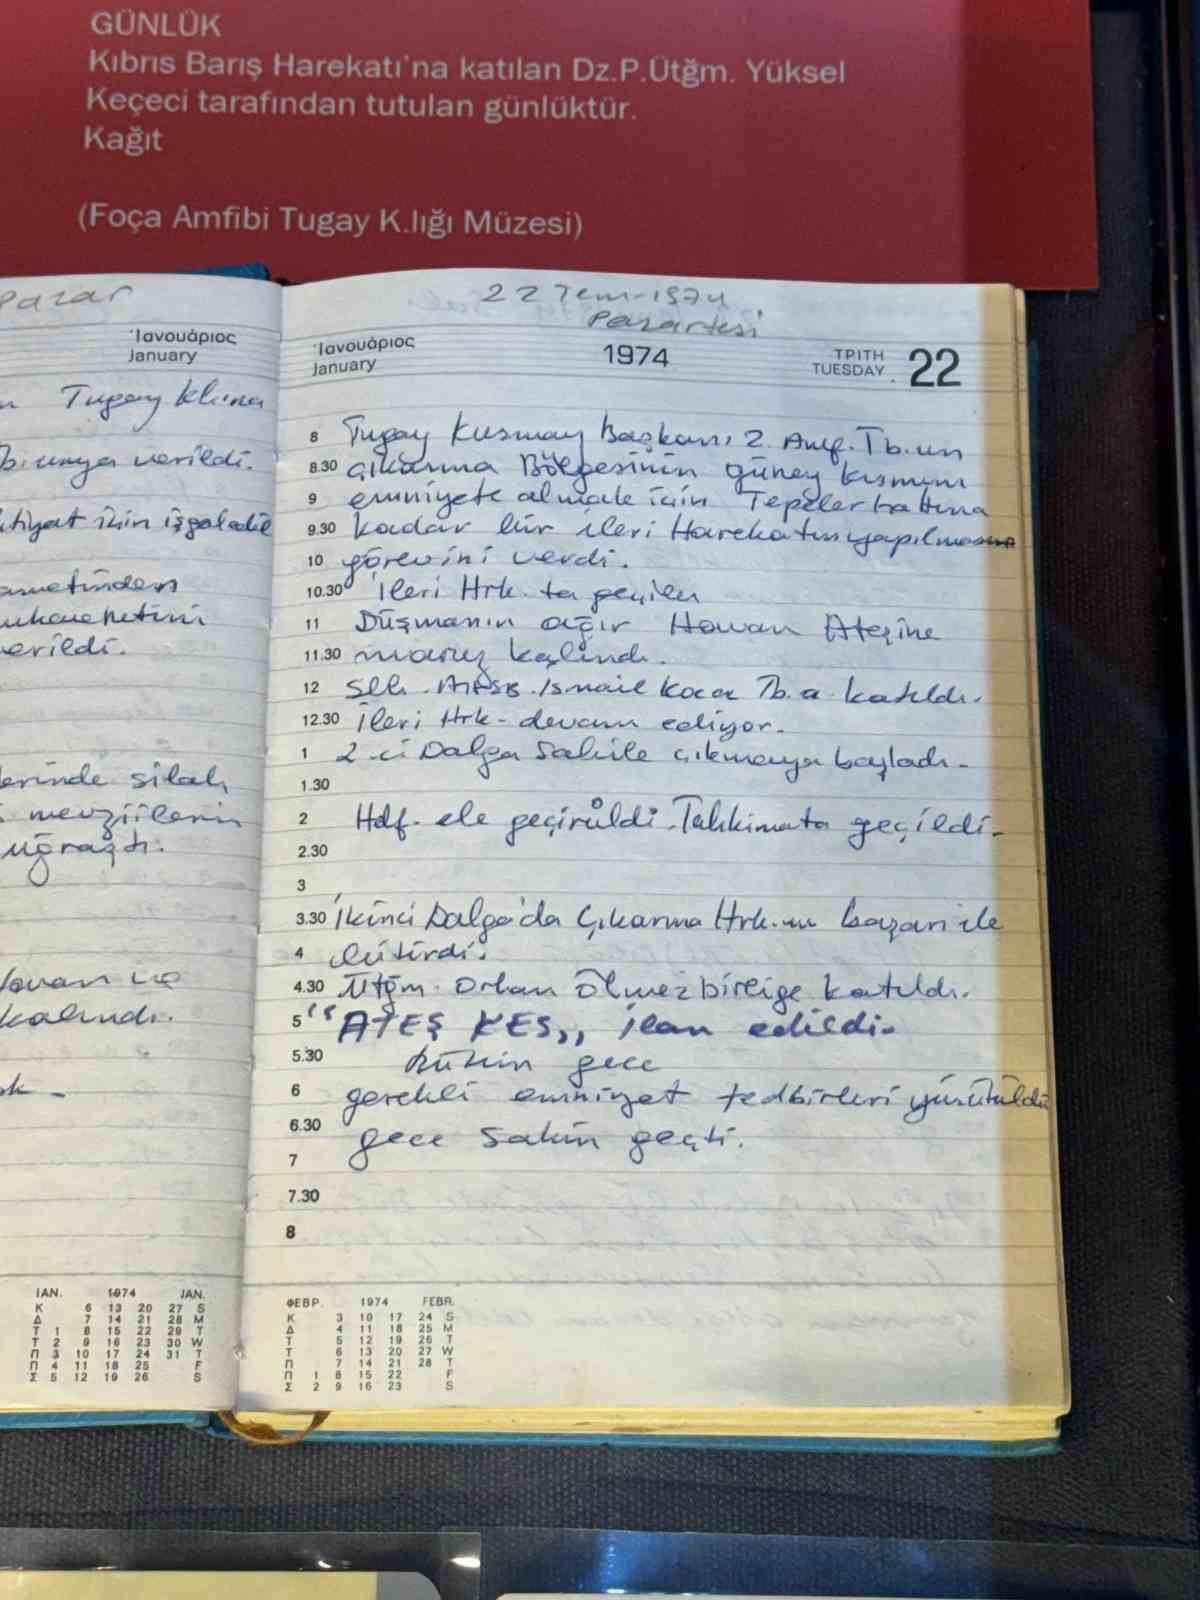 GÜNLÜK
Kıbrıs Barış Harekatı'na katılan Dz.P.Ütğm. Yüksel
Keçeci tarafından tutulan günlüktür.
Kağıt
(Foça Amfibi Tugay K.lığı Müzesi)
Pazar
Ἰανουάριος
January
Tugay
verildi.
ihtiyat için işgal edil
verildi.
lerinde silah
mevziilerin
uğraştı.
Havan ve
kalındı.
IAN. 1974 JAN.
Κ 6 13 20 27 S
Δ 7 14 21 28 M
Τ 1 8 15 22 29 T
Τ 2 9 16 23 30 W
Π 3 10 17 24 31 T
Π 4 11 18 25 F
Σ 5 12 19 26 S
22 Tem-1974
Pazartesi
Ἰανουάριος
January 1974 ΤΡΙΤΗ
TUESDAY 22
8 Tugay Kurmay Başkanı 2. Amf. Tb.un
8.30 çıkarma Bölgesinin güney kısmını
9 emniyete almak için Tepeler hattına
9.30 kadar bir ileri Harekatın yapılması
10 görevini verdi.
10.30 İleri Hrk. ta geçilen
11 Düşmanın ağır Havan Ateşine
11.30 maruz kalındı.
12 İsmail Koca Tb.a katıldı.
12.30 İleri Hrk- devam ediyor.
1 2-ci Dalga Sahile çıkmaya başladı-
1.30
2 Hdf. ele geçirüldi. Tahkimata geçildi-
2.30
3
3.30 İkinci Dalga'da Çıkarma Hrk.nı başarı ile
4 bitirdi.
4.30 Ütğm. Orhan Ölmez birliğe katıldı.
5 "ATEŞ KES,, ilan edildi.
5.30 Bütün gece
6 gerekli emniyet tedbirleri yürütüldü
6.30 gece sakin geçti.
7
7.30
8
ΦΕΒΡ. 1974 FEBR.
Κ 3 10 17 24 S
Δ 4 11 18 25 M
Τ 5 12 19 26 T
Τ 6 13 20 27 W
Π 7 14 21 28 T
Π 1 8 15 22 F
Σ 2 9 16 23 S